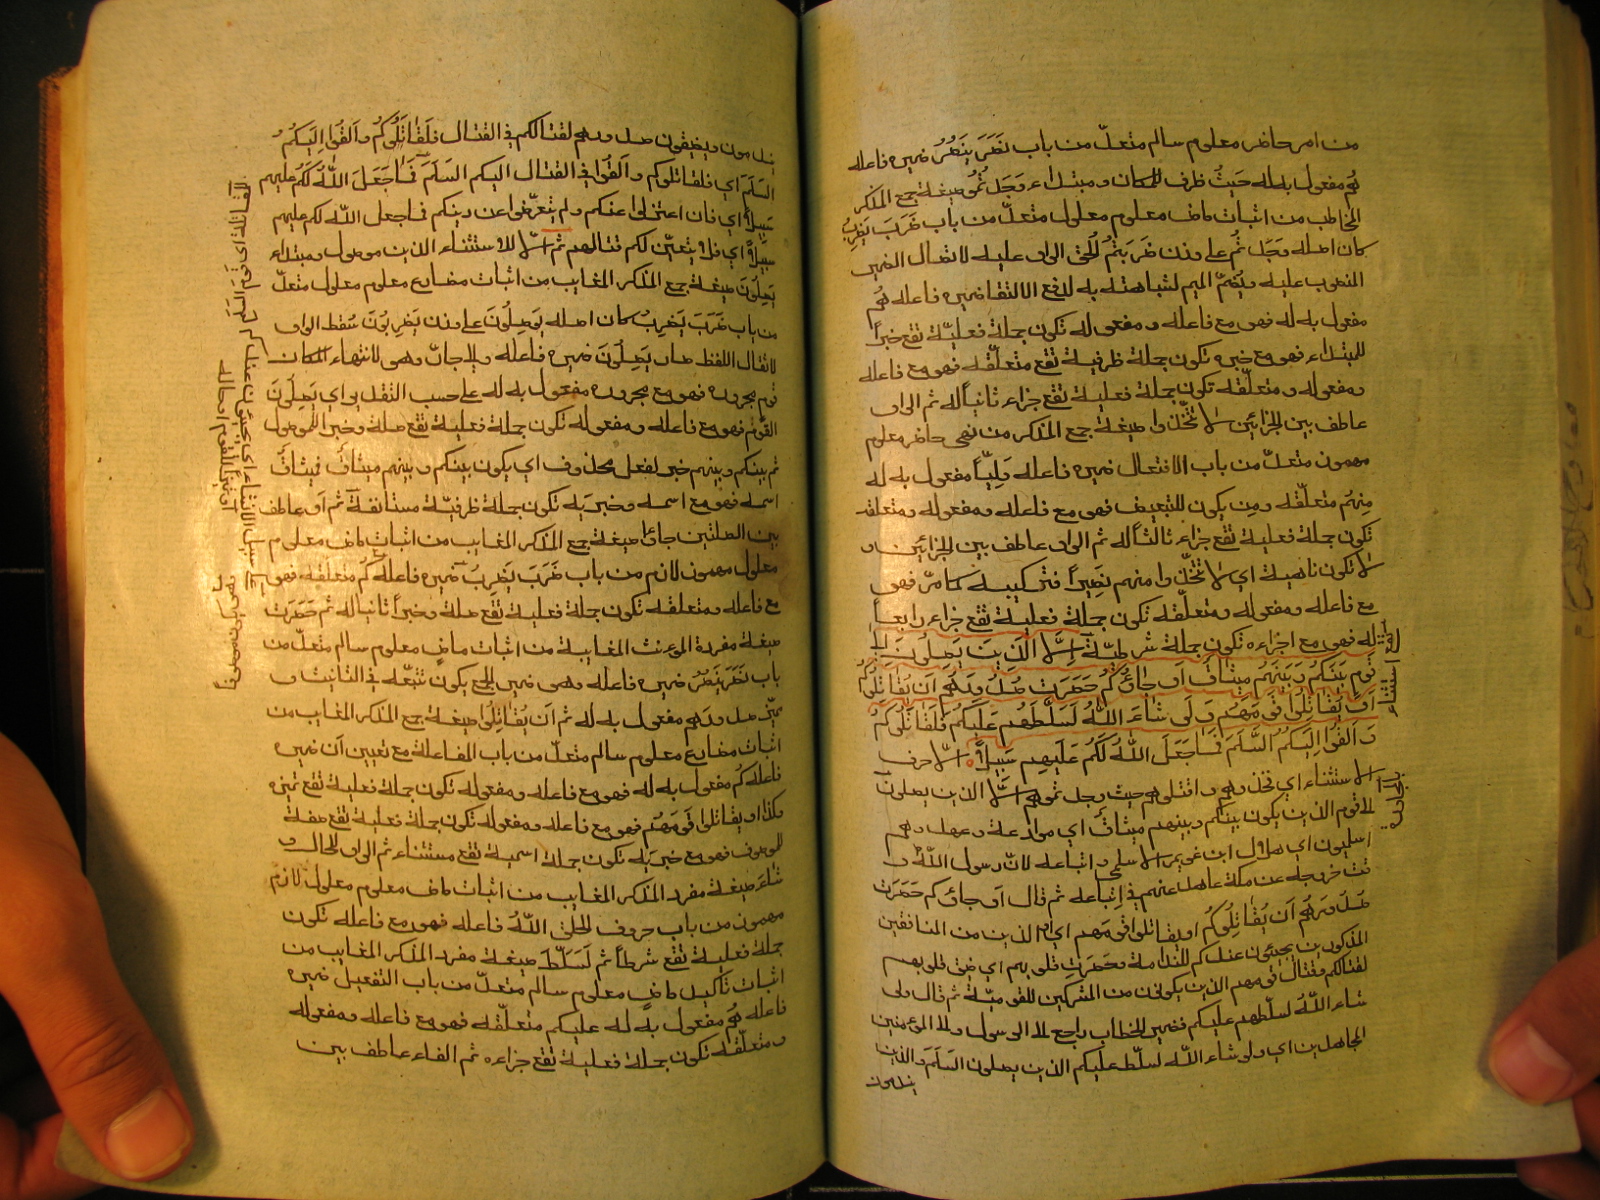 من امر حاضر معلوم سالم متعدّ من باب نَصَرَ يَنْصُرُ ضميره فاعله
هُم مفعول به له حَيثُ ظرف للمكان ومبتداء وَجَدْتُمُو صيغة جمع المذكر
المخاطب من اثبات ماض معلوم معلول متعدّ من باب ضَرَبَ يَضرِبُ
كان اصله وَجَدتُم على وزن ضَرَبتُم اُلحق الواو عليه لاتصال الضمير
المنصوب عليه ويُضمّ الميم لشباهته به لدفع الالتقا ضميره فاعله هُم
مفعول به له فهو مع فاعله ومفعوله تكون جملة فعليّة تقع خبراً
للمبتداء فهو مع خبره تكون جملة ظرفية تقع متعلّقه فهو مع فاعله
ومفعوله ومتعلّقه تكون جملة فعلية تقع جزاء ثانياً له ثم الواو
عاطف بين الجزائين لا تتّخذوا صيغة جمع المذكر من نهى حاضر معلوم
مهموز متعدّ من باب الافتعال ضميره فاعله وَلِيّاً مفعول به له
منهُم متعلّقه ومِن يكون للتبعيض فهو مع فاعله ومفعوله ومتعلقه
تكون جملة فعلية تقع جزاء ثالثاً له ثم الواو عاطف بين الجزائين و
لا تكون ناهية اي لا تتّخذوا منهم نَصِيراً فتركيبه كما مرّ فهو
مع فاعله ومفعوله ومتعلّقه تكون جملة فعلية تقع جزاء رابعاً
له فهو مع اجزاءه تكون جملة شرطيّة اِلَّا الَّذِينَ يَصِلُونَ اِلٰى
قَومٍ بَينَكُم وَبَينَهُم مِيثَاقٌ اَو جَاؤُكُم حَصِرَت صُدُورُهُم اَن يُقَاتِلُوكُم
اَو يُقَاتِلُوا قَومَهُم وَلَو شَاءَ اللّٰهُ لَسَلَّطَهُم عَلَيكُم فَلَقَاتَلُوكُم
وَاَلقَوا اِلَيكُمُ السَّلَمَ فَمَا جَعَلَ اللّٰهُ لَكُم عَلَيهِم سَبِيلاً ه الّا حرف
الاستثناء اي فخذوهم واقتلوهم حيث وجدتموهم اِلَّا الذين يصلون
الا قوم الذين يكون بينكم وبينهم ميثاقٌ اي موادعة وعهد وهم
اسلميون اي هلال ابن عويمر الاسلمي واتباعه لانّ رسول اللّٰه و
قت خروجه عن مكة عاهد عنهم في اتباعه ثم قال اَو جاؤكم حَصِرَت
صُدُورُهُم اَن يُقَاتِلُوكُم او يقاتلوا قومَهم اي او الذين من المنافقين
المذكورين يجيئون عندكم للندامة وحَصِرَت قلوبهم اي ضيق قلوبهم
لقتالكم وقتال قومهم الذين يكونون من المشركين للقوميّة ثم قال ولو
شاء اللّٰهُ لسلّطهم عليكم فضمير الخطاب راجع الا الرسول والا المؤمنين
المجاهدين اي ولو شاء اللّٰه لسلّط عليكم الذين يصلون السَّلَمَ والذين
السَّلَمَ اي فلقاتلوكم واَلقَوا في القتال اليكم السَّلَمَ فَمَا جَعَلَ اللّٰهُ لَكُم عليهم
سَبِيلاً اي فان اعتزلوا عنكم ولم يتعرّضوا عن دينكم فما جعل اللّٰه لكم عليهم
سَبِيلاً اي فلا يتعيّن لكم قتالهم ثم الّا للاستثناء الذين موصول ومبتداء
يَصِلُونَ صيغة جمع المذكر المغايب من اثبات مضارع معلوم معلول متعدّ
من باب ضَرَبَ يَضرِبُ كان اصله يَوصِلُونَ على وزن يَضرِبُونَ سُقط الواو
لاثقال اللفظ صار يَصِلُونَ ضميره فاعله والا جارّ وهو لانتهاء المكان
قوم مجروره فهو مع مجروره مفعول به له على حسب الثقل يواي يَصِلُونَ
القَومَ فهو مع فاعله ومفعوله تكون جملة فعلية تقع صلة وخبر الموصول
ثم بينكم وبينهم خبر لفعل محذوف اي يكون بينكم وبينهم ميثاقٌ فميثاقٌ
اسمه فهو مع اسمه وخبريه تكون جملة ظرفيّة مستانفة ثم اَو عاطف
بين الصلتين جاؤا صيغة جمع المذكر المغايب من اثبات ماض معلوم
معلول مهموز لازم من باب ضَرَبَ يَضرِبُ ضميره فاعله كُم متعلقه فهو
مع فاعله ومتعلقه تكون جملة فعلية تقع صلة وخبراً ثانيا له ثم حَصِرَت
صيغة مفردة المؤنث المغايبة من اثبات ماضٍ معلوم سالم متعدّ من
باب نَصَرَ يَنصُرُ ضميره فاعله وهو ضمير الجمع يكون تتبّعه في التانيث و
صدورهم مفعول به له ثم اَن يُقَاتِلُوا صيغة جمع المذكر المغايب من
اثبات مضارع معلوم سالم متعدّ من باب المفاعلة مع تعيين اَن ضميره
فاعله كُم مفعول به له فهو مع فاعله ومفعوله تكون جملة فعلية تقع تميزه
وكذا او يقاتلوا قومَهُم فهو مع فاعله ومفعوله تكون جملة فعلية تقع صفة
الموصوف فهو مع خبريه تكون جملة اسمية تقع مستثناء ثم الواو للحال و
شاءَ صيغة مفرد المذكر المغايب من اثبات ماض معلوم معلول لازم
مهموز من باب حروف الحلق اللّٰهُ فاعله فهو مع فاعله تكون
جملة فعلية تقع شرطاً ثم لَسَلَّطَ صيغة مفرد المذكر المغايب من
اثبات تاكيد ماضٍ معلوم سالم متعدّ من باب التفعيل ضميره
فاعله هُم مفعول به له عليكم متعلّقه فهو مع فاعله ومفعوله
ومتعلّقه تكون جملة فعلية تقع جزاءه ثم الفاء عاطف بين